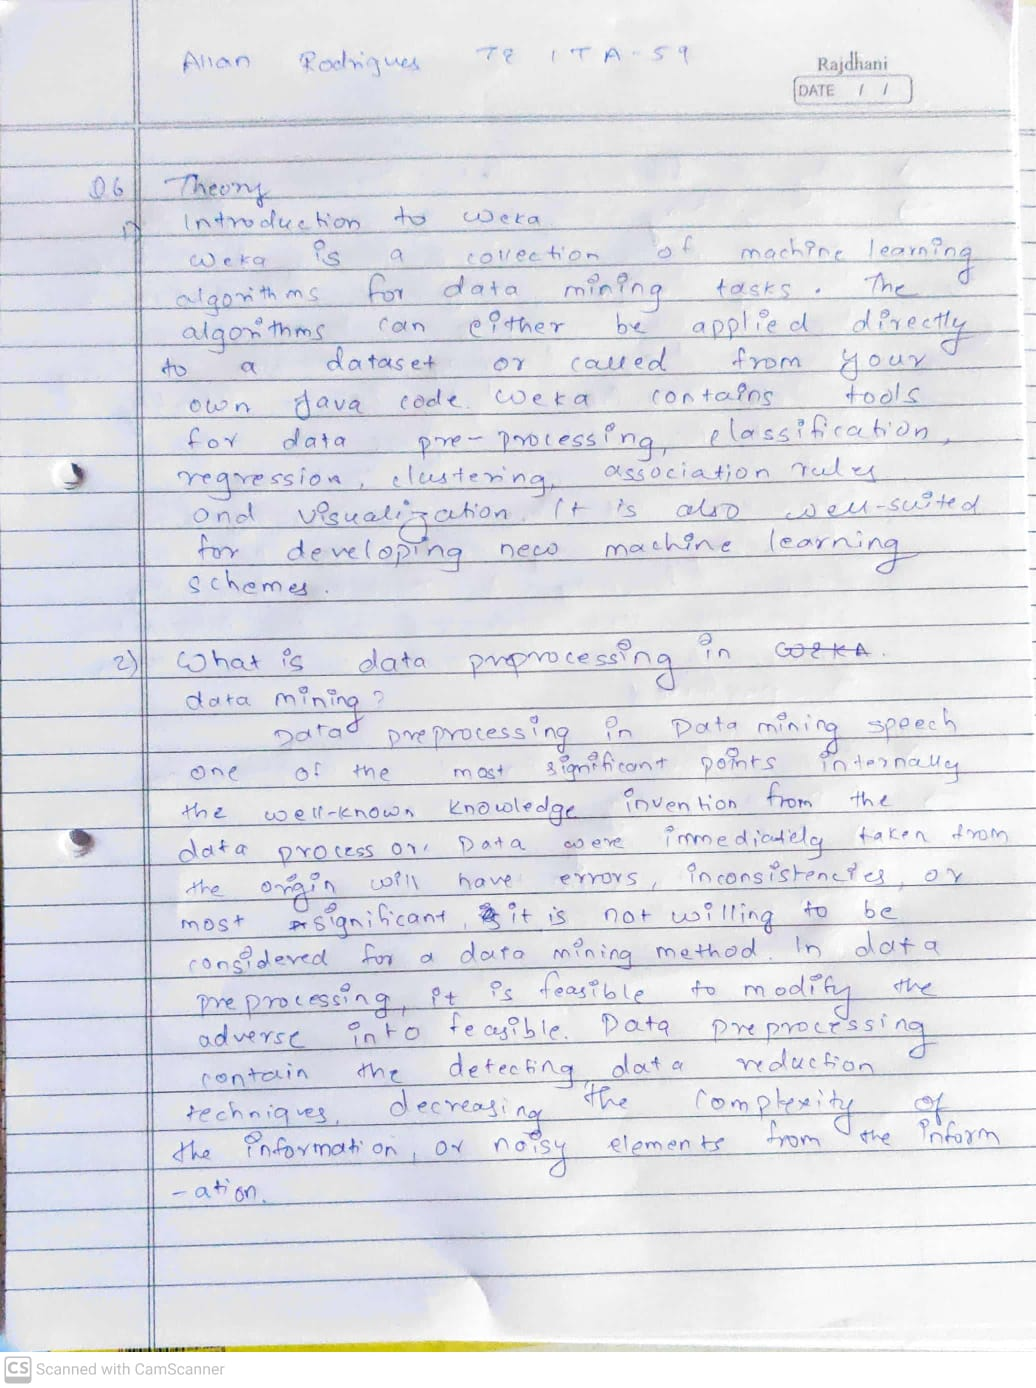 Allan Rodrigues TE ITA-59
Rajdhani
DATE / /
Q6 Theory
1) Introduction to weka
weka is a collection of machine learning
algorithms for data mining tasks. The
algorithms can either be applied directly
to a dataset or called from your
own Java code. weka contains tools
for data pre-processing, classification,
regression, clustering, association rules
and visualization. It is also well-suited
for developing new machine learning
schemes.
2) What is data preprocessing in WEKA.
data mining?
Data preprocessing in Data mining speech
one of the most significant points internally
the well-known knowledge invention from the
data process or. Data were immediately taken from
the origin will have errors, inconsistencies, or
most significant, it is not willing to be
considered for a data mining method. In data
preprocessing, it is feasible to modify the
adverse into feasible. Data preprocessing
contain the detecting, data reduction
techniques, decreasing the complexity of
the information, or noisy elements from the inform
-ation.
CS Scanned with CamScanner